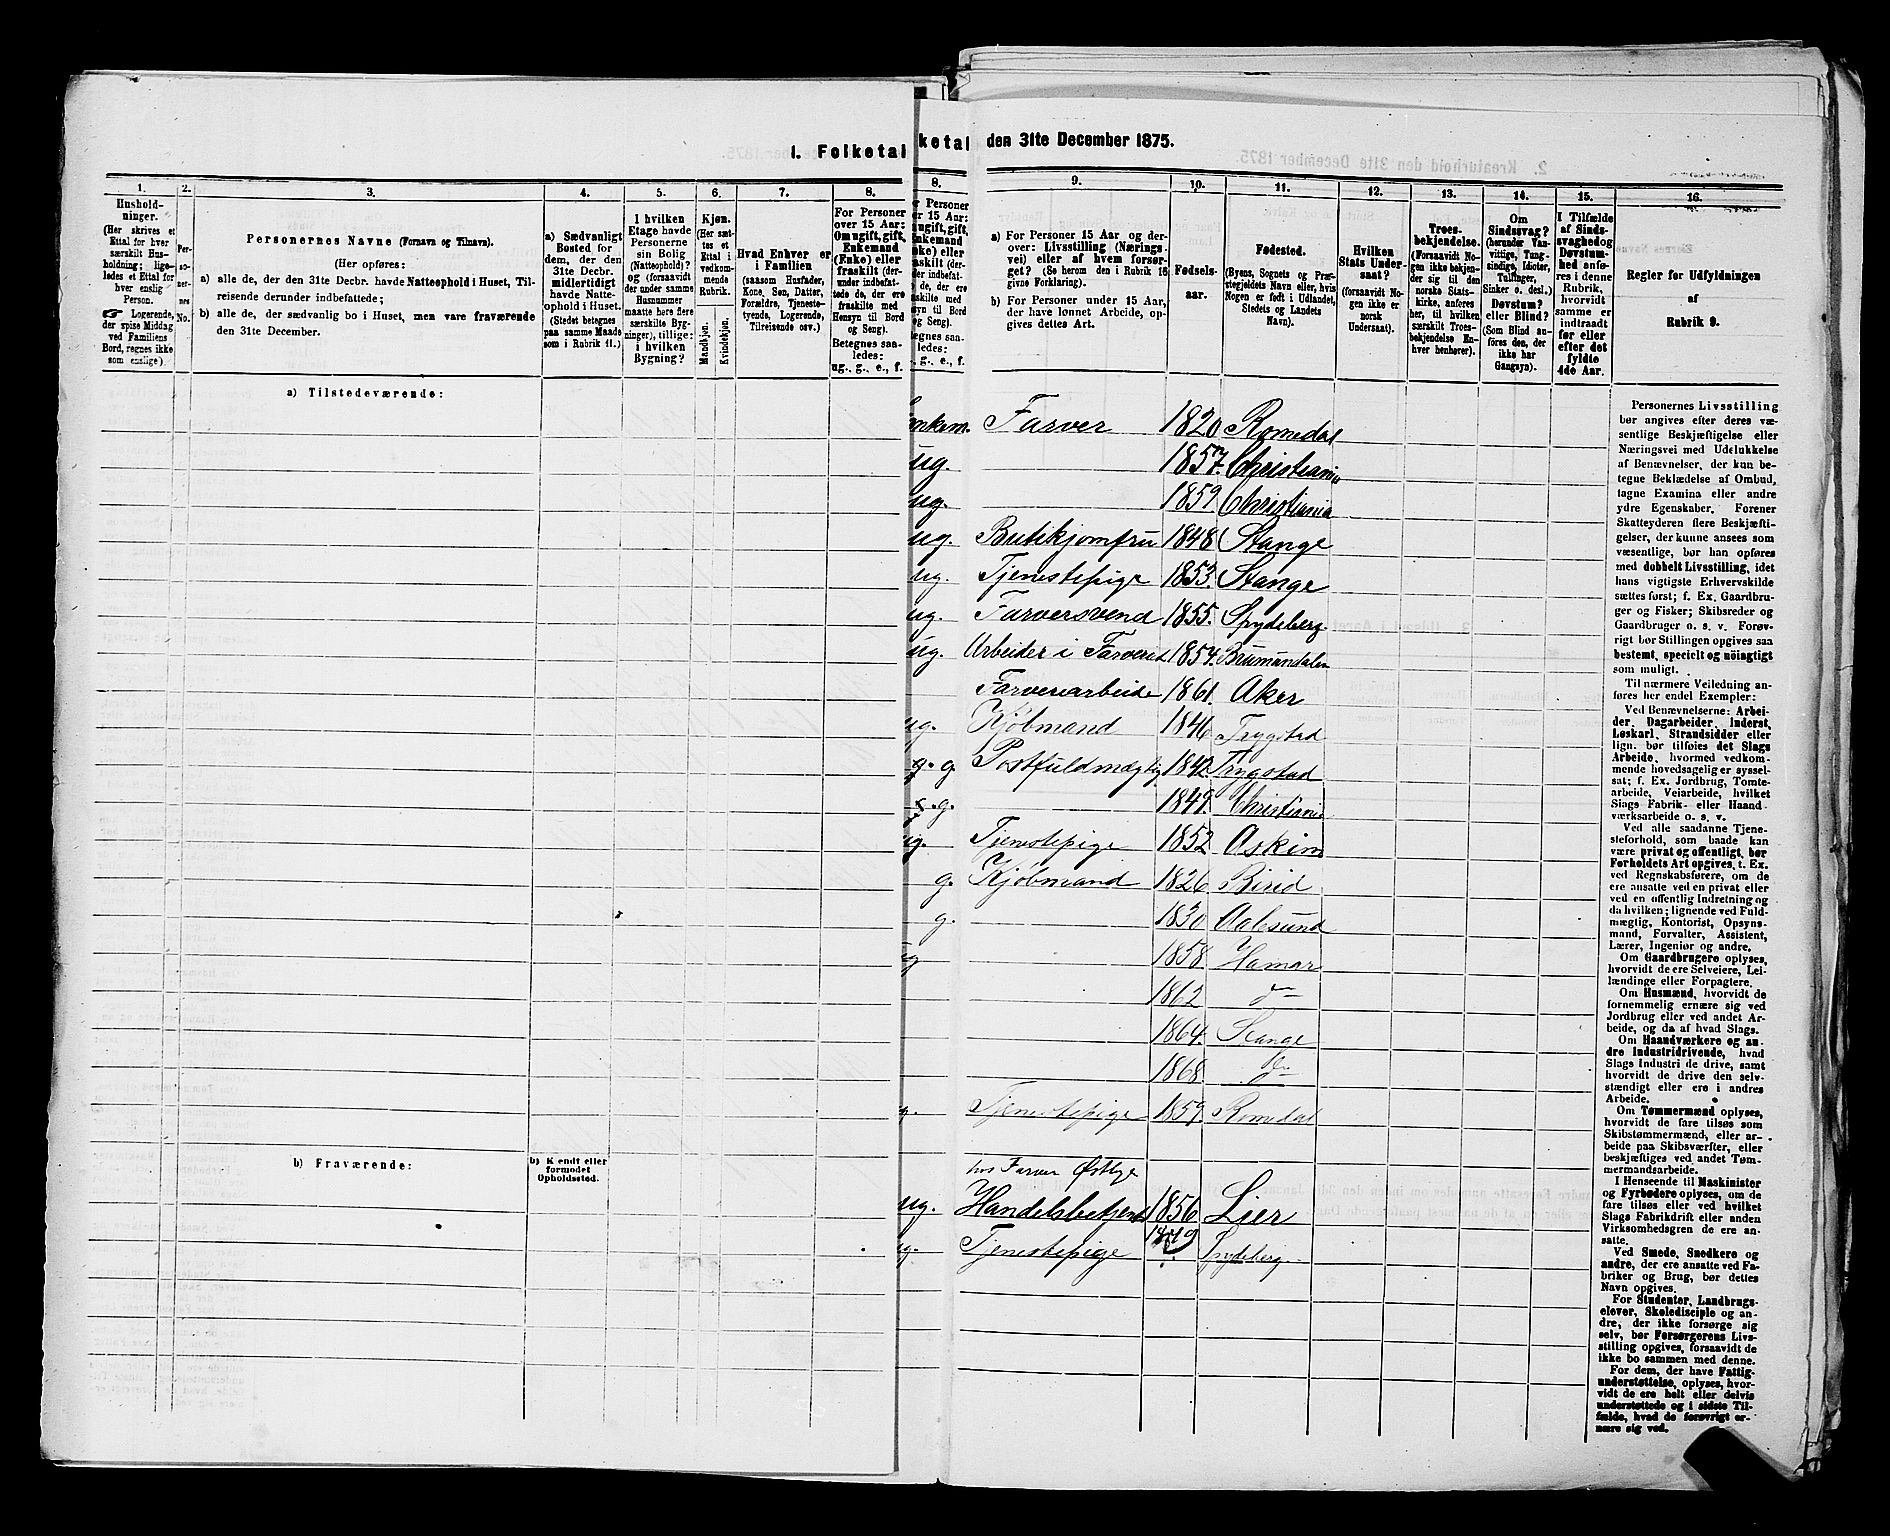 1. Folketal
1.
2.
3.
4.
5.
6.
7.
8.
Hushold-
ninger.
(Her skrives et
Ettal for hver
særskilt Hus-
holdning; lige-
ledes et Ettal for
hver enslig
Person.
☞ Logerende,
der spise Middag
ved Familiens
Bord, regnes ikke
som enslige).
Per-
so-
ner-
nes
No.
Personernes Navne (Fornavn og Tilnavn).
(Her opføres:
a) alle de, der den 31te Decbr. havde Natteophold i Huset, Til-
reisende derunder indbefattede;
b) alle de, der sædvanlig bo i Huset, men vare fraværende
den 31te December.
a) Sædvanligt
Bosted for
dem, der den
31te Decbr.
midlertidigt
havde Natte-
ophold i Huset.
(Stedet betegnes
paa samme Maade
som i Rubrik 11.)
I hvilken
Etage havde
Personerne
sin Bolig
(Natteophold)?
og (forsaavidt
der under samme
Husnummer
maatte høre flere
særskilte Byg-
ninger), tillige:
i hvilken
Bygning?
Kjøn.
(Her sæt-
tes et
Ettal i
vedkom-
mende
Rubrik.
Mandkjøn.
Kvindekjøn.
Hvad Enhver er
i Familien
(saasom Husfader,
Kone, Søn, Datter,
Forældre, Tjeneste-
tyende, Logerende,
Tilreisende osv.)
For Personer
over 15 Aar:
Om ugift, gift,
Enkemand
(Enke) eller
fraskilt (der-
under indbefat-
tede de, der ere
fraskilte med
Hensyn til Bord
og Seng).
Betegnes saa-
ledes:
ug., g., e., f.
a) Tilstedeværende:
b) Fraværende:
b) Kjendt eller
formodet
Opholdssted.
ketal den 31te December 1875.
8.
9.
10.
11.
12.
13.
14.
15.
16.
a) For Personer 15 Aar og der-
over: Livsstilling (Nærings-
vei) eller af hvem forsør-
get? (Se herom den i Rubrik 16
givne Forklaring).
b) For Personer under 15 Aar,
der have lønnet Arbeide, op-
gives dettes Art.
Fødsels-
aar.
Fødested.
(Byens, Sognets og Præ-
stegjeldets Navn eller, hvis
Nogen er født i Udlandet,
Stedets og Landets
Navn).
Hvilken
Stats Under-
saat?
(forsaavidt No-
gen ikke er
norsk
Undersaat).
Troes-
bekjendelse.
(Forsaavidt No-
gen ikke bekjen-
der sig til den
norske Stats-
kirke, anføres
her, til hvilken
særskilt Troes-
bekjendelse En-
hver henhører).
Om
Sindssvag?
(herunder Van-
vittige, Tung-
sindige, Idioter,
Tullinger,
Sinker o. desl.)
Døvstum?
eller Blind?
(Som Blind an-
føres den, der
ikke har
Gangsyn).
I Tilfælde
af Sinds-
svaghed og
Døvstum-
hed anfø-
res i denne
Rubrik,
hvorvidt
samme er
indtraadt
før eller
efter det
fyldte
4de Aar.
Regler for Udfyldningen
af
Rubrik 9.
enkem. Farver 1820 Romedal
ug. 1857. Christiania
ug. 1859 Christiania
ug. Butikjomfru 1848 Stange
ug. Tjenestepige 1853. Stange
ug. Farversvend 1855. Spydeberg.
ug. Arbeider i Farveri 1854. Brumundalen
Farveriarbeide 1861. Aker
ug. Kjøbmand 1846 Trygstad
g. Postfuldmægtig 1842 Trygstad
g. 1849. Christiania
ug. Tjenestepige 1852 Askim
g. Kjøbmand 1826 Birid
g. 1830 Aalesund
ug 1858 Hamar
1862 do
1864. Stange
1868 do
ug. Tjenestepige 1859. Romedal
hos Farver Østbye
ug. Handelsbetjent 1856 Lier
ug. Tjenestepige Spydeberg.
Personernes Livsstilling
bør angives efter deres væ-
sentlige Beskjæftigelse eller
Næringsvei med Udelukkelse
af Benævnelser, der kun be-
tegne Beklædelse af Ombud,
tagne Examina eller andre
ydre Egenskaber. Forener
Skatteyderen flere Beskjæfti-
gelser, der kunne ansees som
væsentlige, bør han opføres
med dobbelt Livsstilling, idet
hans vigtigste Erhvervskilde
sættes først; f. Ex. Gaardbru-
ger og Fisker; Skibsreder og
Gaardbruger o. s. v. Forøv-
rigt bør Stillingen opgives saa
bestemt, specielt og nöiagtigt
som muligt.
Til nærmere Veiledning an-
føres her endel Exempler:
Ved Benævnelserne: Arbei-
der, Dagarbeider, Inderst,
Løskarl, Strandsidder eller
lign. bør tilføies det Slags
Arbeide, hvormed vedkom-
mende hovedsagelig er syssel-
sat; f. Ex. Jordbrug, Tomte-
arbeide, Veiarbeide, hvilket
Slags Fabrik- eller Haand-
værksarbeide o. s. v.
Ved alle saadanne Tjene-
steforhold, som baade kan
være privat og offentligt, bør
Forholdets Art opgives, t. Ex.
ved Regnskabsførere, om de
ere ansatte ved en privat eller
ved en offentlig Indretning og
da hvilken; lignende ved Fuld-
mægtig, Kontorist, Opsyns-
mand, Forvalter, Assistent,
Lærer, Ingeniør og andre.
Om Gaardbrugere oplyses,
hvorvidt de ere Selveiere, Lei-
lændinge eller Forpagtere.
Om Husmænd, hvorvidt de
fornemmelig ernære sig ved
Jordbrug eller ved andet Ar-
beide, og da af hvad Slags.
Om Haandværkere og an-
dre Industridrivende, hvad
Slags Industri de drive, samt
hvorvidt de drive den selv-
stændigt eller ere i andres
Arbeide.
Om Tømmermænd oplyses,
hvorvidt de fare tilsøs som
Skibstømmermænd, eller ar-
beide paa Skibsværfter, eller
beskjæftiges ved andet Tøm-
mermandsarbeide.
I Henseende til Maskinister
og Fyrbødere oplyses, om de
fare tilsøs eller ved hvilket
Slags Fabrikdrift eller anden
Virksomhedsgren de ere an-
satte.
Ved Smede, Snedkere og
andre, der ere ansatte ved Fa-
briker og Brug, bør dettes
Navn opgives.
For Studenter, Landbrugs-
elever, Skoledisciple og an-
dre, der ikke forsørge sig
selv, bør Forsørgerens Livs-
stilling opgives, forsaavidt de
ikke bo sammen med denne.
For dem, der have Fattig-
understøttelse, oplyses, hvor-
vidt de ere helt eller delvis
understøttede og i sidste Til-
fælde, hvad de forøvrigt er-
nære sig ved.